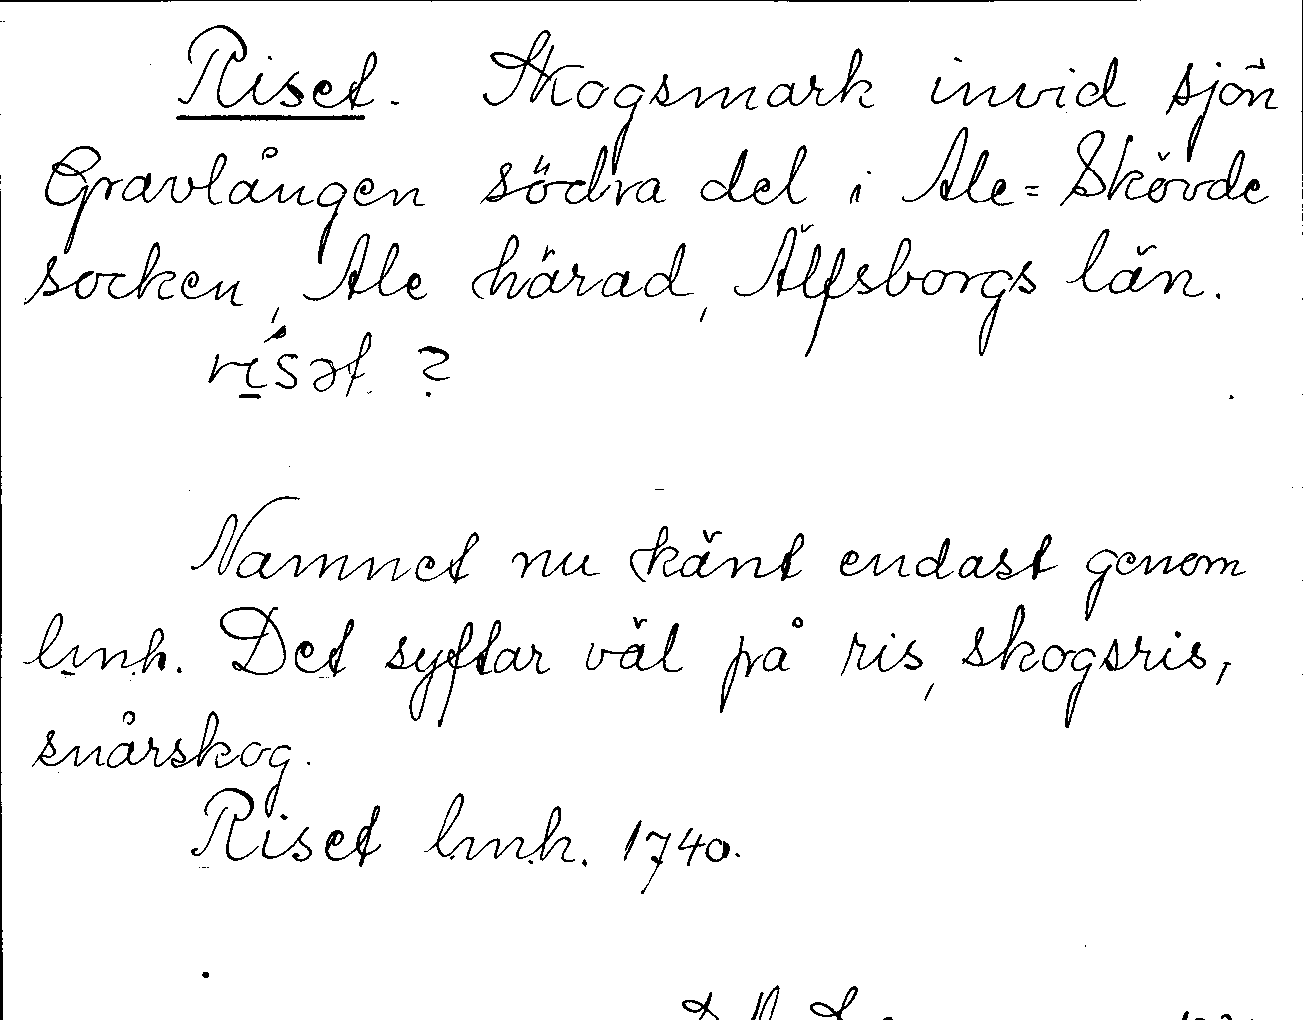 Riset. Skogsmark invid sjön
Gravlången södra del i Ale=Skövde
socken, Ale härad, Älfsborgs län.
rí̱sət. ?
Namnet nu känt endast genom
lmh. Det syftar väl på ris, skogsris,
snårskog.
Riset lmh. 1740.